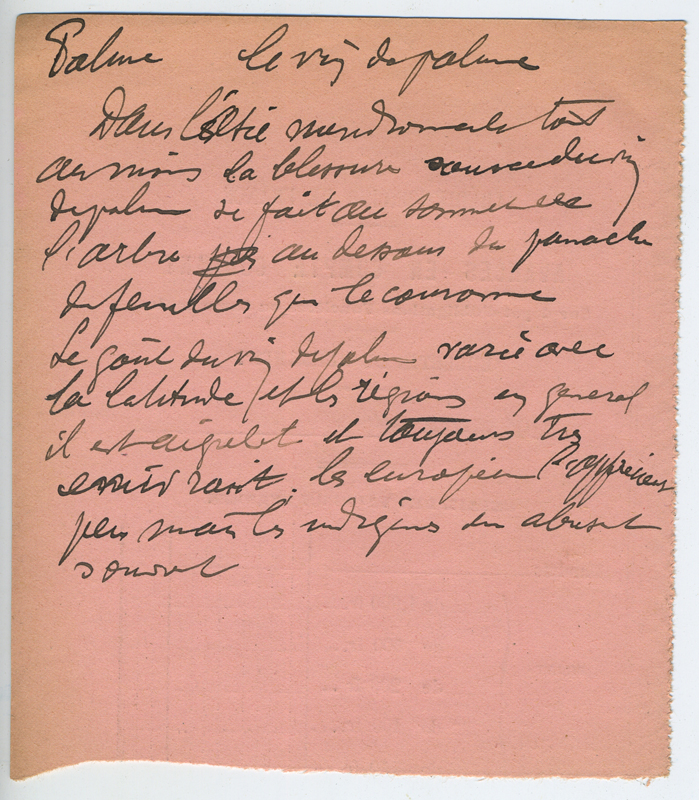 Palme le vin de palme
Dans l'Est tout
au moins la blessure source du vin
de palme se fait au sommet de
l'arbre au dessous du panache
de feuilles qui le couronne
Le goût du vin de palme varie avec
la latitude et les régions en general
il est aigrelet et toujours très
les européens l'apprécient
peu mais les indigènes en abusent
souvent